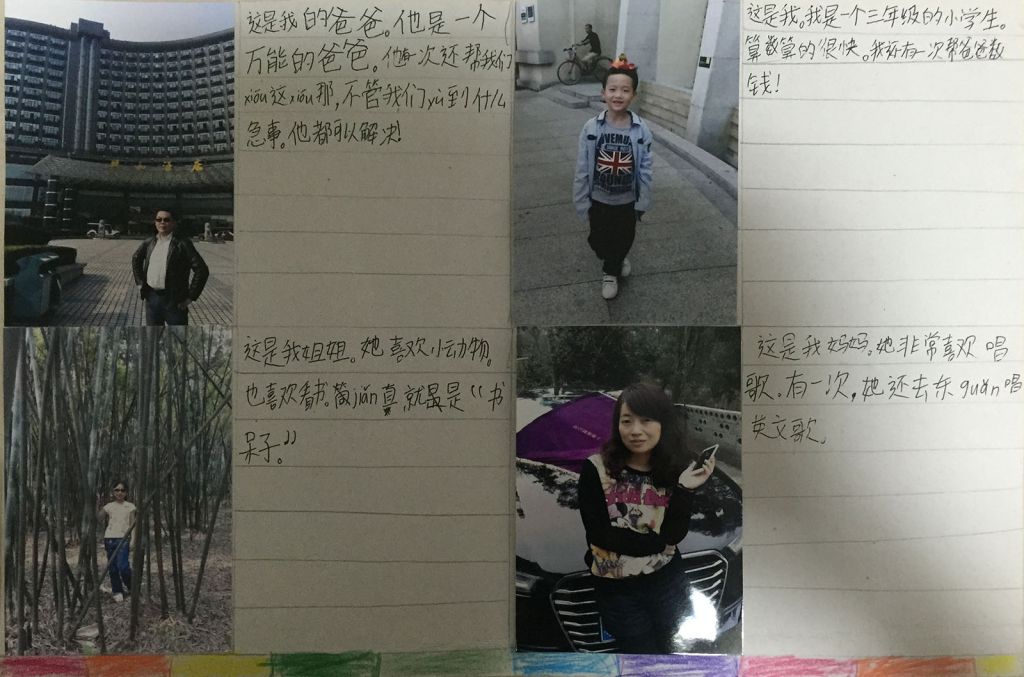 这是我的爸爸。他是一个
万能的爸爸。他每次还帮我们
xiōu这xiōu那,不管我们yù到什么
急事。他都可以解决!
这是我。我是一个三年级的小学生。
算数算的很快。我还有一次帮爸爸数
钱!
这是我姐姐。她喜欢小动物。
也喜欢看书。简jiǎn真就是是“书
呆子。”
这是我妈妈。她非常喜欢唱
歌。有一次,她还去东guǎn唱
英文歌。